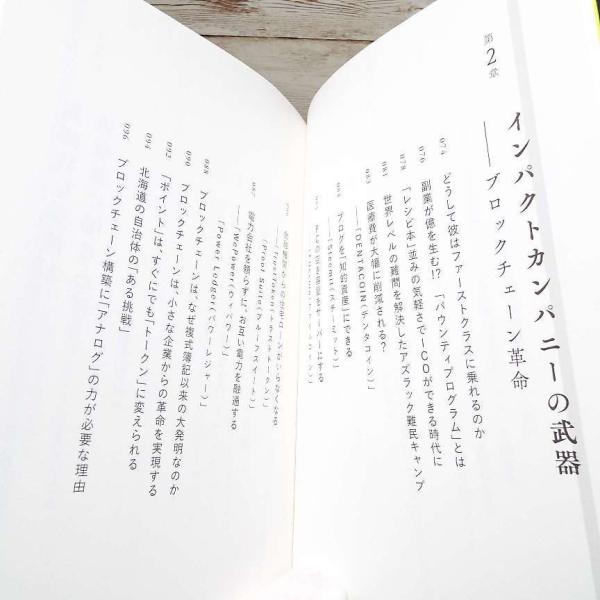 第2章
インパクトカンパニーの武器
――ブロックチェーン革命
074 どうして彼はファーストクラスに乗れるのか
076 副業が億を生む!? 「バウンティプログラム」とは
078 「レシピ本」並みの気軽さでICOができる時代に
081 世界レベルの難問を解決したアズラック難民キャンプ
083 医療費が大幅に削減される?
――「DENTACOIN(デンタコイン)」
ブログを「知的資産」にできる
――「Steemit(スチーミット)」
サーバーにする
住宅ローンがいらなくなる
――「TrustToken(トラストトークン)」
「Proof Suite(プルーフスイート)」
087 電力会社を頼らずに、お互い電力を融通する
――「WePower(ウィパワー)」
「Power Ledger(パワーレジャー)」
088 ブロックチェーンは、なぜ複式簿記以来の大発明なのか
090 ブロックチェーンは、小さな企業からの革命を実現する
092 「ポイント」は、すぐにでも「トークン」に変えられる
094 北海道の自治体の「ある挑戦」
096 ブロックチェーン構築に「アナログ」の力が必要な理由